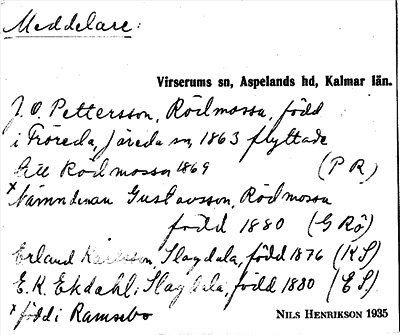 Meddelare:
Virserums sn, Aspelands hd, Kalmar län.
J. O. Pettersson, Rödmossa, född
i Fröreda, Järeda sn, 1863 flyttade
till Rödmossa 1869 (P R)
x Nämndeman Gustavsson, Rödmossa
född 1880 (G Rö)
Erland Karlsson, Slagdala, född 1876 (K S)
E. K. Ekdahl, Slagdala, född 1880 (E S).
x född i Ramsebo
NILS HENRIKSON 1935